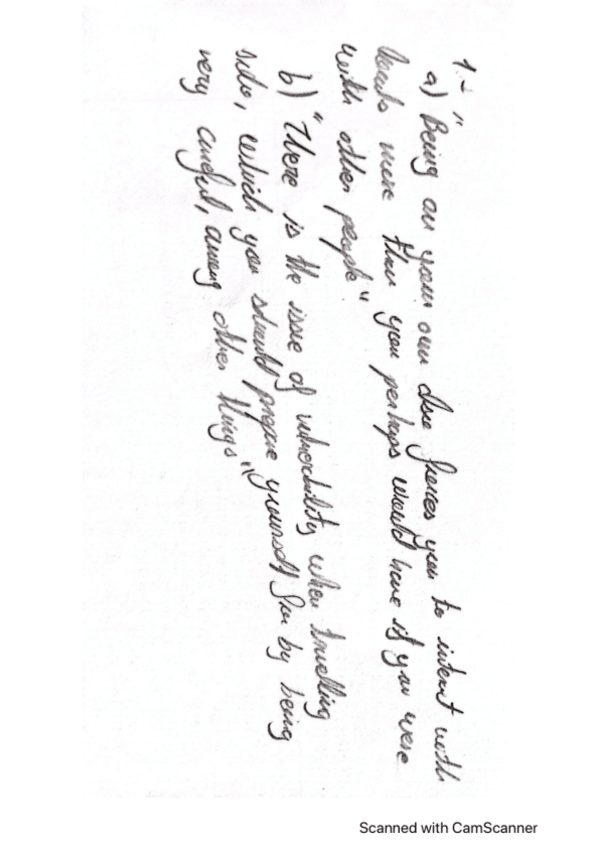 1.-
a) "Being on your own also forces you to interact with
locals more than you perhaps would have if you were
with other people"
b) "There is the issue of vulnerability when travelling
solo, which you should prepare yourself for by being
very careful, among other things"
Scanned with CamScanner